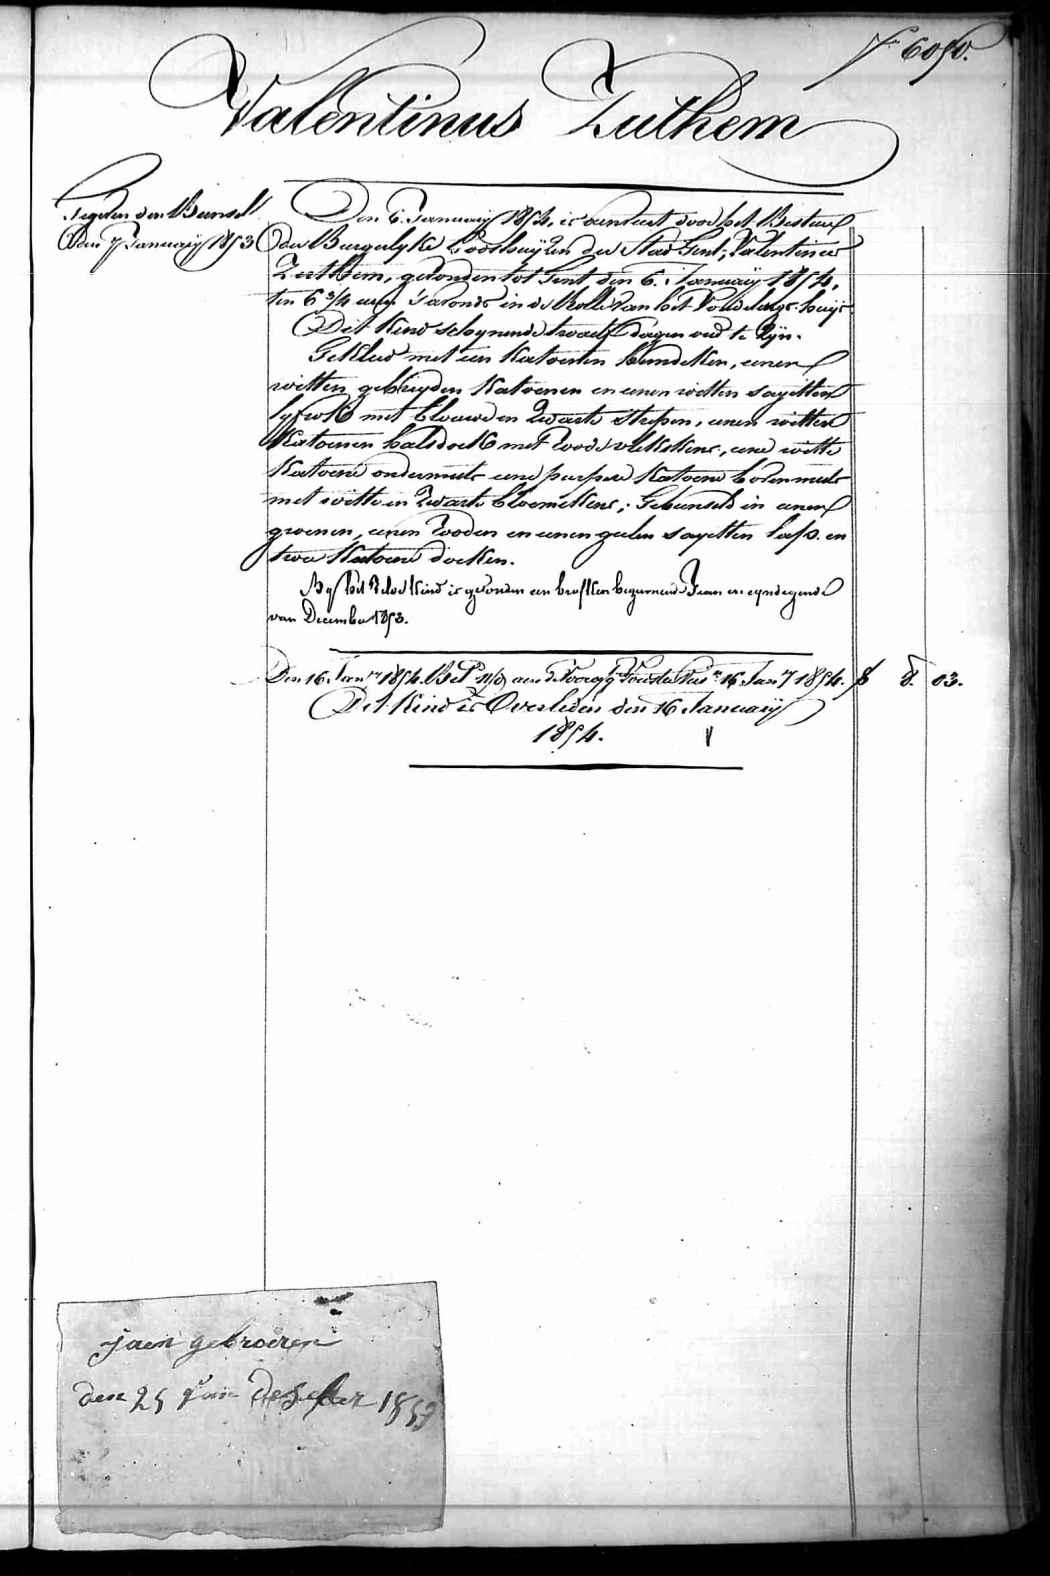 Nº 6090.
Valentinus Zuthem
Tegelen den Bunsel
Den 7 January 1853
Den 6. January 1854, is aenveert door het Bestuer
der Burgerlyke Godshuyzen der Stad Gent, Valentinus
Zuthem, gevonden tot Gent, den 6. January 1854,
ten 6 3/4 uren 's avonds in de Rolle van het Vondelings-huys
Dit kind schynende twaelf dagen oud te zyn.
Gekleed met een katoenen hemdeken, eenen
witten gebreyden katoenen en eenen witten sayetten
lyfrok met blauwe en zwarte strepen, eenen witten
katoenen halsdoek met roode vlekskens, eene witte
katoene ondermuts eene purpere katoene bovenmuts
met witte en zwarte bloemekens; Gebunseld in eenen
groenen, eenen rooden en eenen geelen sayetten lap. en
twee katoene doeken.
By het zelve kind is gevonden een briefken beginnende Jaen en eyndegende
van December 1853.
Den 16 Jan.ry 1854. Bet. aen 16 Jan.ry 1854. f 8. 03.
Dit Kind is Overleden den 16 January
1854.
Jaen gebroeren
den 25 van Desember 1853